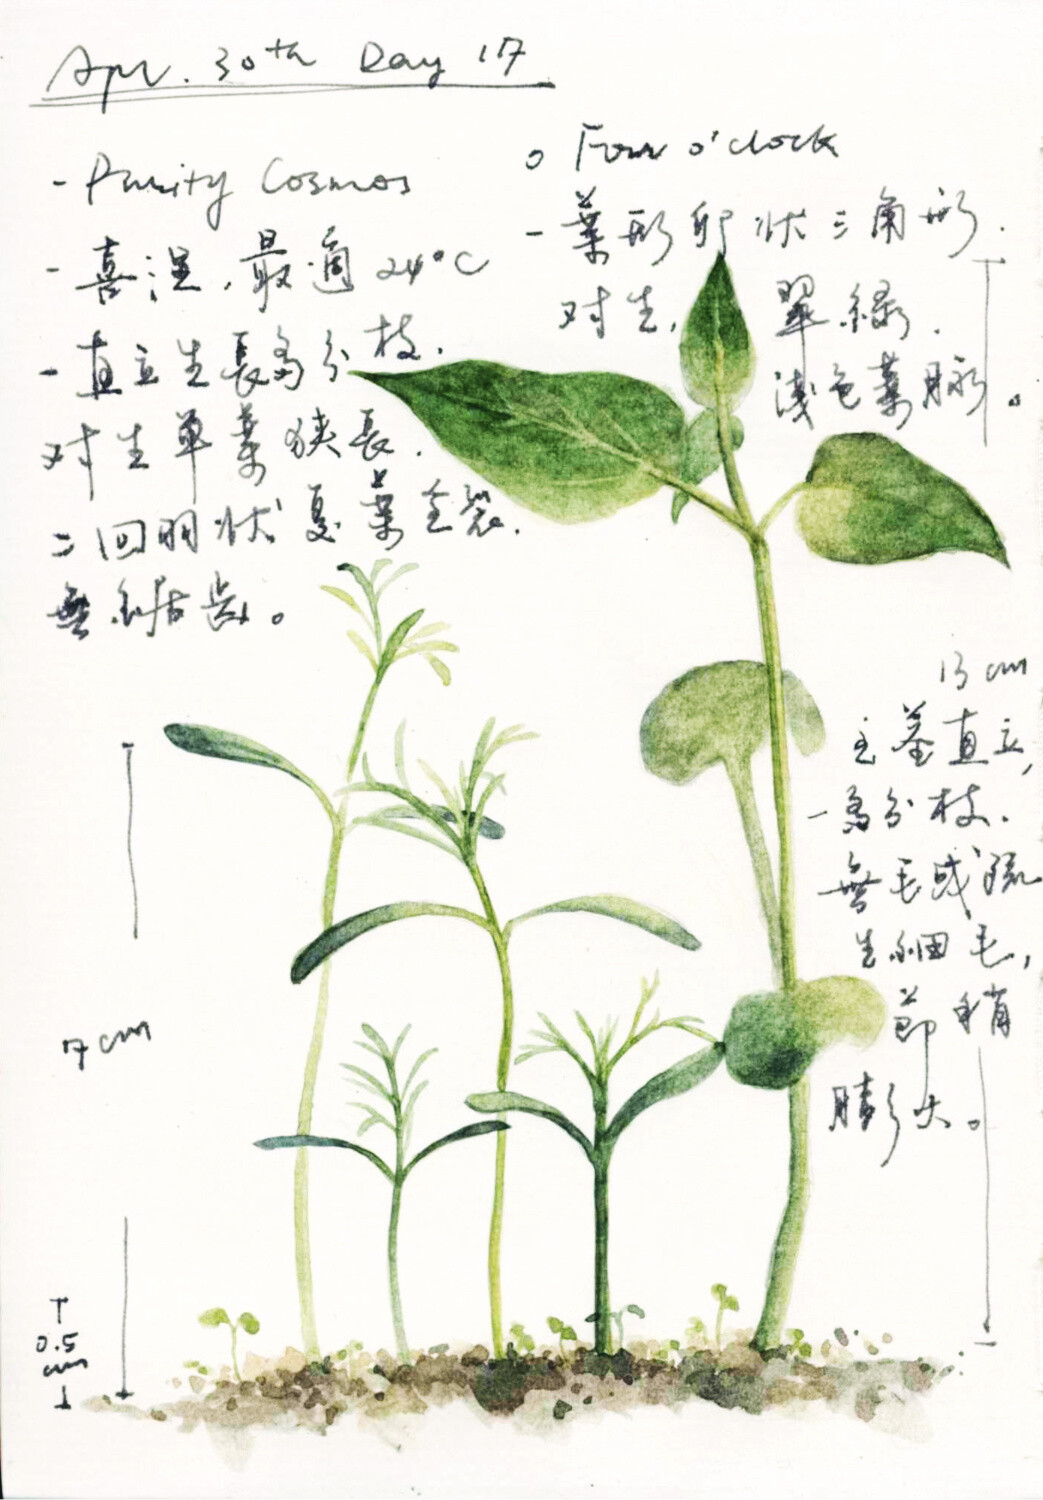 Apr. 30th Day 17
- Purity Cosmos
- 喜湿,最適 24°C
- 直立生長多分枝.
对生单葉狭長.
二回羽状复葉全裂.
無鋸齿。
o Four o'clock
- 葉形卵状三角形.
对生, 翠綠.
浅色葉脉。
13 cm
主茎直立,
- 多分枝.
無毛或疏
生細毛,
節稍
膨大。
7 cm
0.5
cm